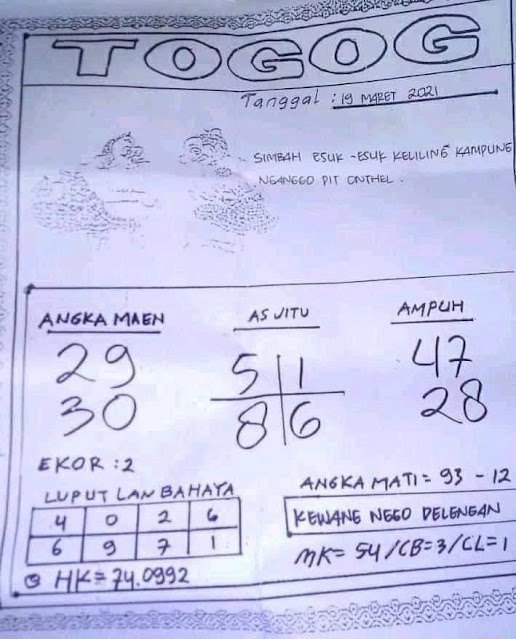 TOGOG
Tanggal : 19 MARET 2021
SIMBAH ESUK - ESUK KELILING KAMPUNG
NGANGGO PIT ONTHEL.
ANGKA MAEN
29
30
AS JITU
5 1
8 6
AMPUH
47
28
EKOR : 2
LUPUT LAN BAHAYA
4 0 2 6
6 9 7 1
HK = 74.0992
ANGKA MATI = 93 - 12
KEWANE NEGO DELENGAN
MK = 54 / CB = 3 / CL = 1